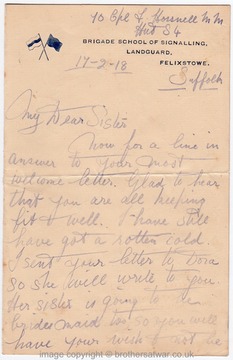 70 Cpl L Hounell M M
Hut S4
BRIGADE SCHOOL OF SIGNALLING,
LANDGUARD,
FELIXSTOWE.
17-2-18
Suffolk
My Dear Sister
Now for a line in
answer to your most
welcome letter. Glad to hear
that you are all keeping
fit & well. I have still
have got a rotten cold.
I sent your letter to Dora
so she will write to you.
Her sister is going to be
bridesmaid too, so you will
have your wish & not be
image copyright © brothersatwar.co.uk